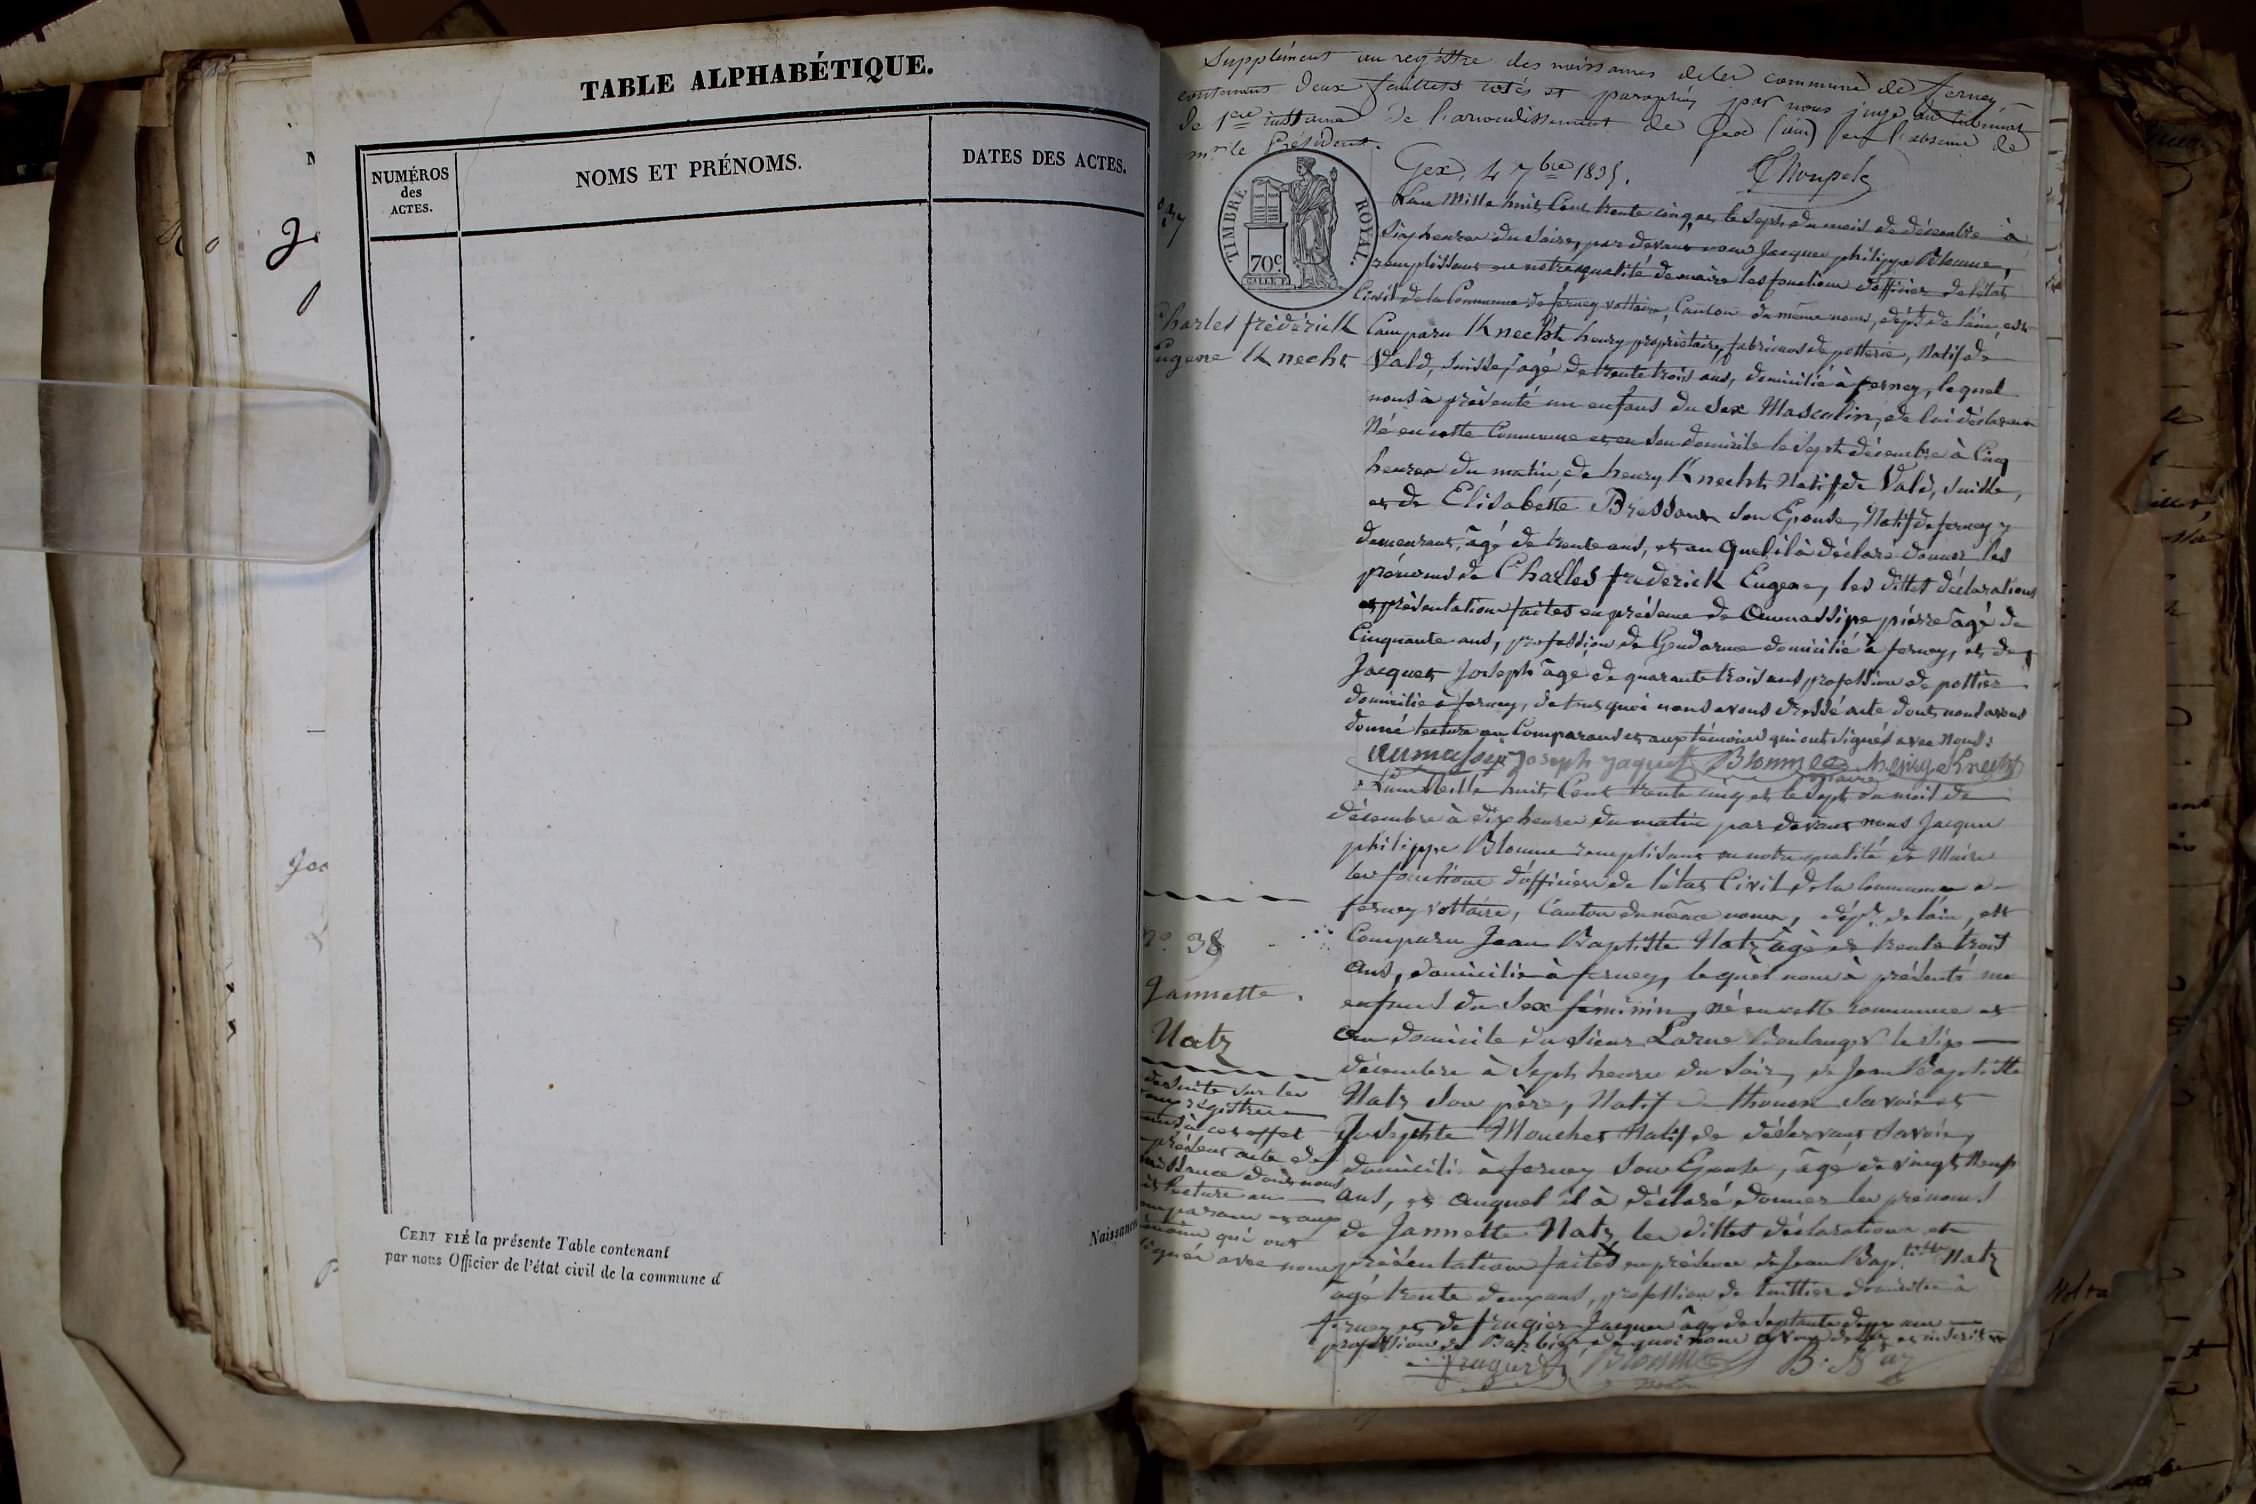 TABLE ALPHABÉTIQUE.
NUMÉROS
des
ACTES.
NOMS ET PRÉNOMS.
DATES DES ACTES.
CERTIFIÉ la présente Table contenant
par nous Officier de l'état civil de la commune d
Naissances
Supplément au registre des naissances de la commune de ferney,
contenant deux feuillets cotés et paraphés par nous juge
de 1ere instance de l'arrondissement de Gex (ain) en l'absence de
mr le Président.
Gex, 4 7bre 1835.
TIMBRE ROYAL.
70c
37
Charles frédérick
Eugene Knecht
L'an Mille huit Cent trente cinq et le sept du mois de décembre à
six heures du soir, par devant nous Jacques philippe Blomme,
remplissant en notre qualité de maire les fonctions d'officier de létat
Civil de la Commune de ferney voltaire, Canton du même nom, dépt de lain, est
Comparu Knecht henry propriétaire, fabricant de potterie, Natif de
Vald, Suisse, âgé de trente trois ans, domicilié à ferney, lequel
nous à présenté un enfant du Sex Masculin, de lui déclarant
Né en cette Commune et en son domicile le Sept décembre à Cinq
heures du matin, de henry Knecht Natif de Vald, Suisse,
et de Elisabette Bressant son Epouse, Natif de ferney y
demeurant, âgé de trente ans, et au quel il à déclaré donner les
prénoms de Charles frederick Eugene, les dittes déclarations
et présentation faites en présence de Aumassipe pierre âgé de
Cinquante ans, profession de Gendarme domicilié à ferney, et de
Jacquet Joseph âgé de quarante trois ans profession de pottier
domicilié à ferney, de tout quoi nous avons dressé acte dont nous avons
donné lecture au Comparant et aux témoins qui ont signés avec Nous:
aumassip Joseph jaquet Blomme henry Knecht
maire
L'an Mille huit Cent trente cinq et le sept du mois de
décembre à dix heures du matin par devant nous Jacques
philippe Blomme remplissant en notre qualité de Maire
les fonctions d'officier de létat Civil de la Commune de
ferney voltaire, Canton du même nom, dépt de lain, est
n° 38
Comparu Jean Baptiste Natz âgé de trente trois
ans, domicilié à ferney, lequel nous à présenté un
Jannette
enfant du Sex féminin, né en cette commune et
Natz
au domicile du sieur Boulanger le six
décembre à Sept heures du soir, de Jean Baptiste
Natz son père, Natif de thonon Savoie et
Josephte Mouchet Natif de Savoie,
domicilié à ferney son Epouse, âgé de vingt Neuf
ans, et auquel il à déclaré donner les prénoms
de Jannette Natz, les dittes déclarations et
présentation faites en présence de Jean Baptiste Natz
âgé trente deux ans, profession de domicilié à
ferney et de frugier Jacques âgé de Septante deux ans
profession de Barbier, de quoi nous avons et inscrit
de suite sur les
registres
à cet effet
présent acte de
naissance dont nous
lecture au
comparant et aux
témoins qui ont
signés avec nous
Blomme